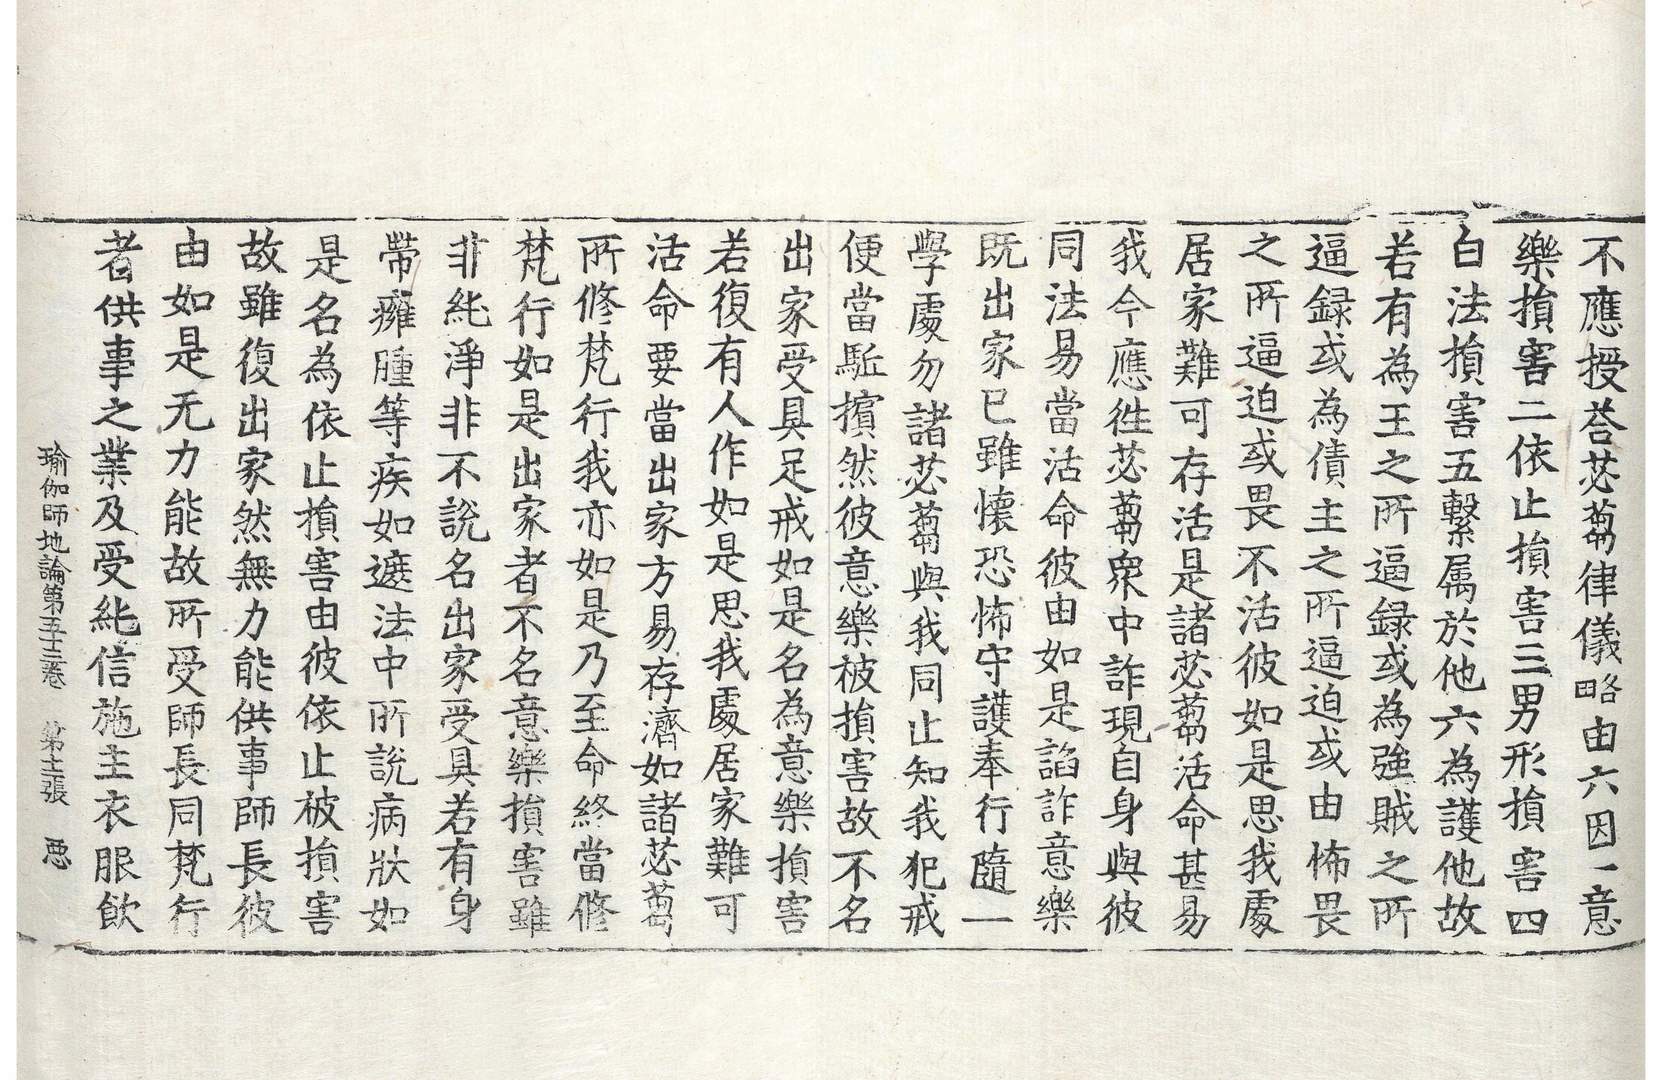 不應授荅苾蒭律儀略由六因一意
樂損害二依止損害三男形損害四
白法損害五繫属於他六為護他故
若有為王之所逼録或為強賊之所
逼録或為債主之所逼迫或由怖畏
之所逼迫或畏不活彼如是思我處
居家難可存活是諸苾蒭活命甚易
我今應往苾蒭衆中詐現自身與彼
同法易當活命彼由如是諂詐意樂
既出家已雖懷恐怖守護奉行隨一
學處勿諸苾蒭與我同止知我犯戒
便當駈擯然彼意樂被損害故不名
出家受具足戒如是名為意樂損害
若復有人作如是思我處居家難可
活命要當出家方易存濟如諸苾蒭
所修梵行我亦如是乃至命終當修
梵行如是出家者不名意樂損害雖
非純淨非不說名出家受具若有身
帶癰腫等疾如遮法中所說病狀如
是名為依止損害由彼依止被損害
故雖復出家然無力能供事師長彼
由如是无力能故所受師長同梵行
者供事之業及受純信施主衣服飲
瑜伽師地論第五十三卷 第十一張 惡